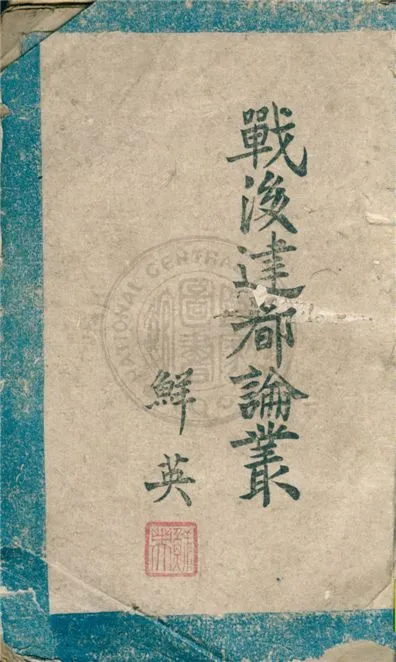 戰後建都論叢
鮮英
NATIONAL CENTRAL
圖書